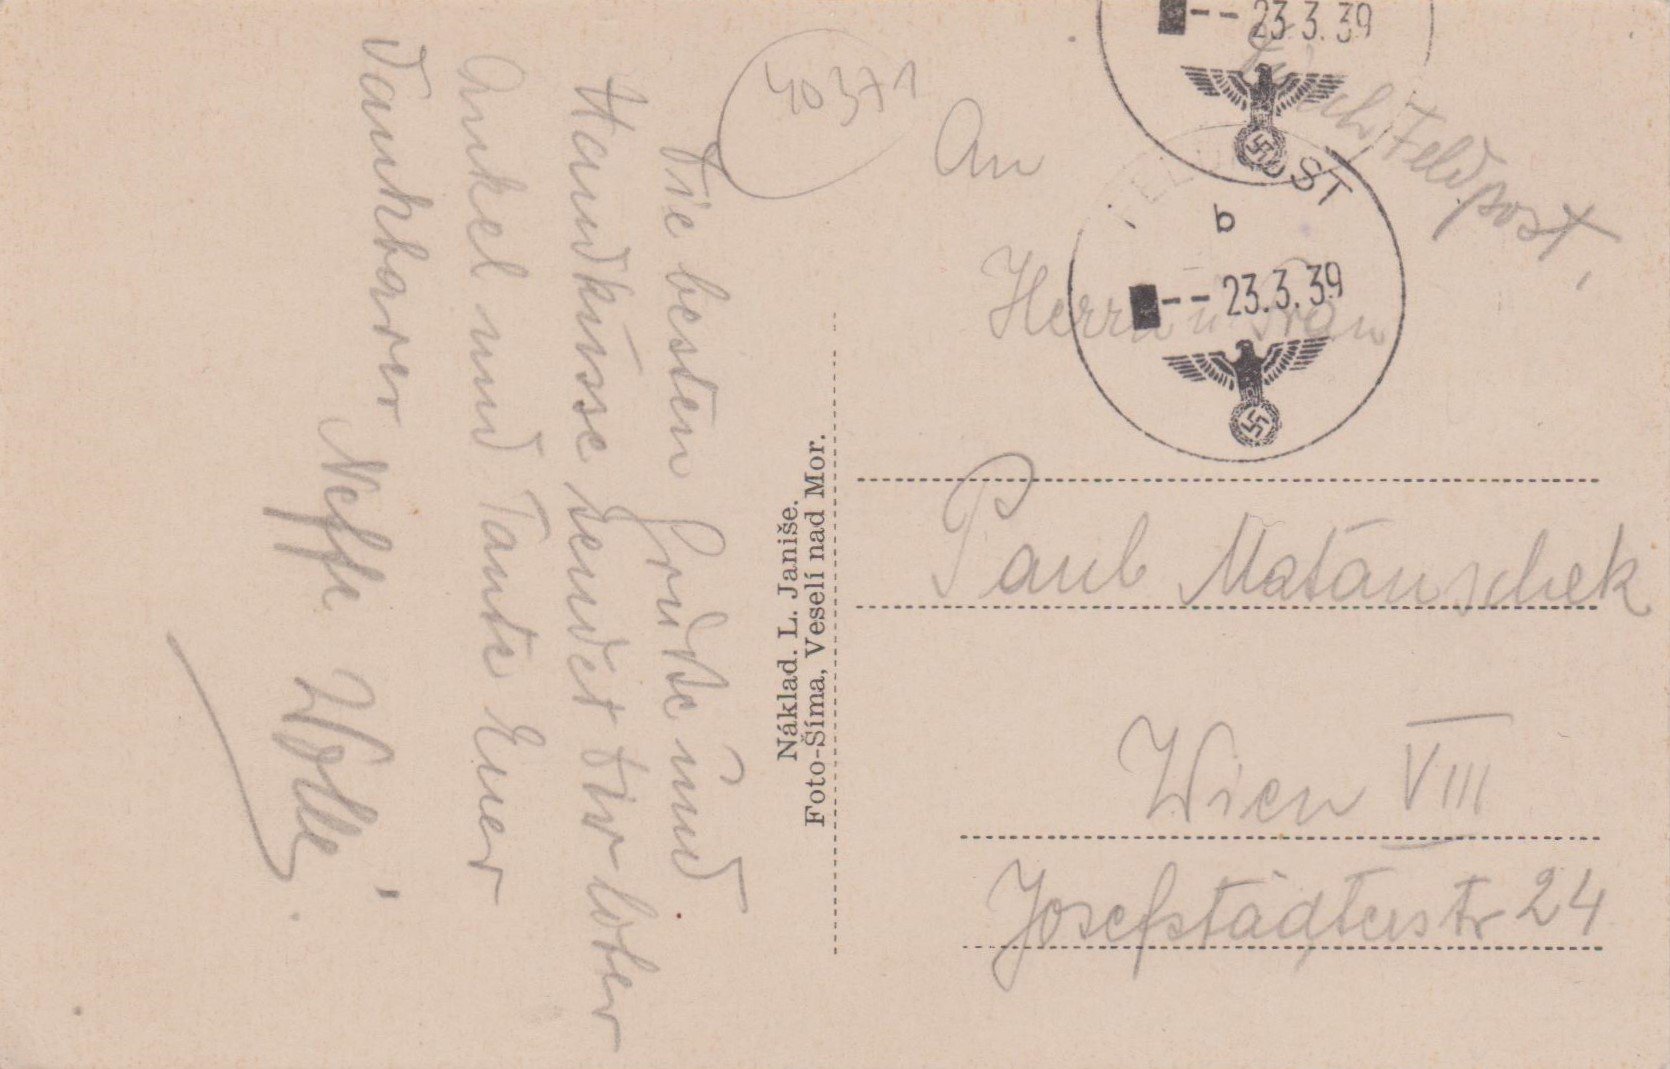 40371
Die besten Grüße und
Handküsse sendet Dir lieber
Onkel und Tante Euer
dankbarer Neffe Willi
Náklad. L. Janiše.
Foto-Šíma, Veselí nad Mor.
23.3.39
Feldpost
FELDPOST
b
23.3.39
An
Herrn u Frau
Paul Matauschek
Wien VIII
Josefstädterstr 24